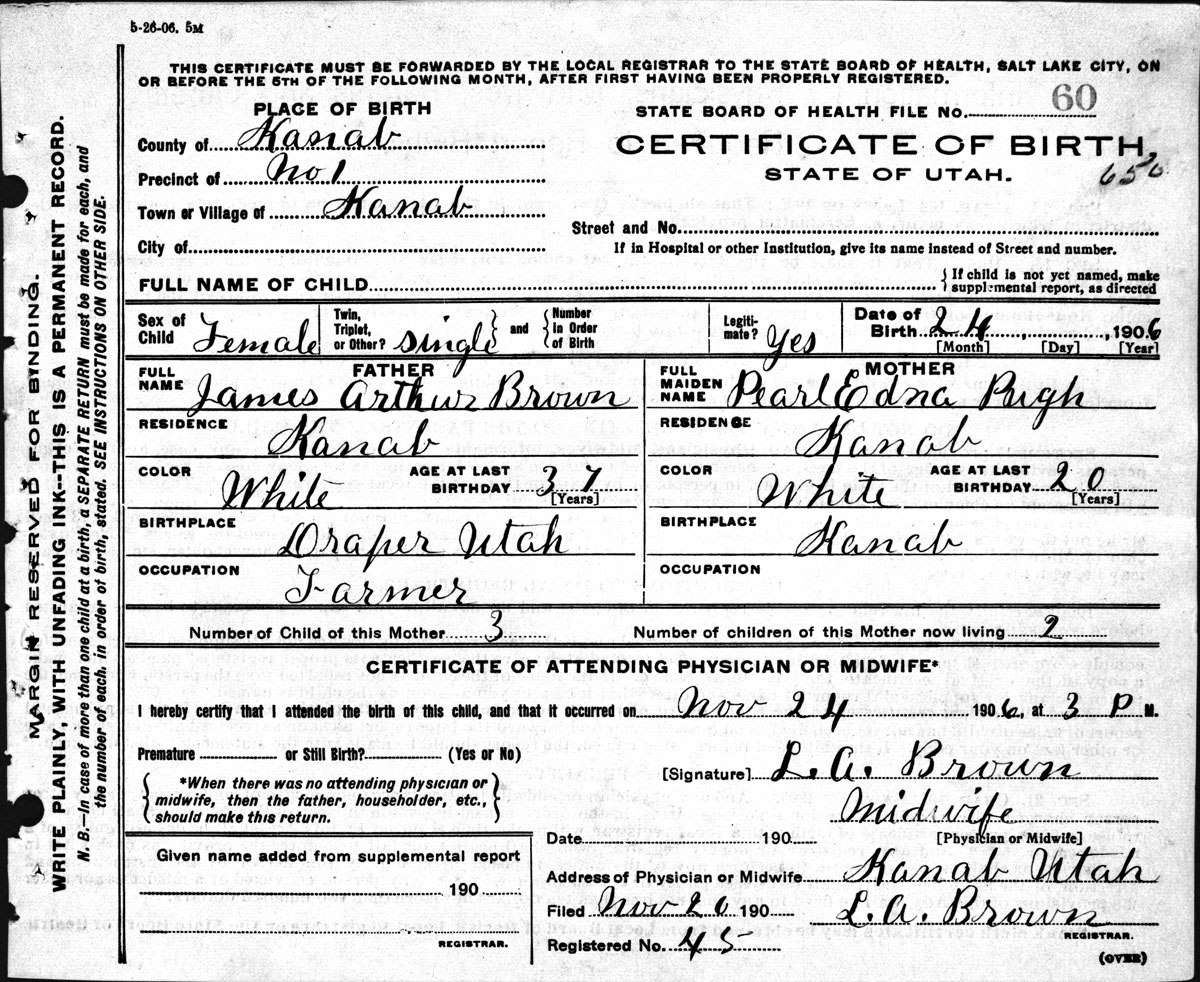 5-26-06. 5M
THIS CERTIFICATE MUST BE FORWARDED BY THE LOCAL REGISTRAR TO THE STATE BOARD OF HEALTH, SALT LAKE CITY, ON
OR BEFORE THE 5TH OF THE FOLLOWING MONTH, AFTER FIRST HAVING BEEN PROPERLY REGISTERED.
MARGIN RESERVED FOR BINDING.
WRITE PLAINLY, WITH UNFADING INK--THIS IS A PERMANENT RECORD.
N. B.—In case of more than one child at a birth, a SEPARATE RETURN must be made for each, and
the number of each, in order of birth, stated. SEE INSTRUCTIONS ON OTHER SIDE.
PLACE OF BIRTH
County of Kanab
Precinct of No 1
Town or Village of Kanab
City of
STATE BOARD OF HEALTH FILE NO. 60
CERTIFICATE OF BIRTH
STATE OF UTAH.
656
Street and No.
If in Hospital or other Institution, give its name instead of Street and number.
FULL NAME OF CHILD
If child is not yet named, make
supplemental report, as directed
Sex of Child Female
Twin, Triplet, or Other? single and Number in Order of Birth
Legiti-mate? Yes
Date of Birth 24, 1906
[Month] [Day] [Year]
FATHER
FULL NAME James Arthur Brown
RESIDENCE Kanab
COLOR White AGE AT LAST BIRTHDAY 37 [Years]
BIRTHPLACE Draper Utah
OCCUPATION Farmer
MOTHER
FULL MAIDEN NAME Pearl Edna Pugh
RESIDENCE Kanab
COLOR White AGE AT LAST BIRTHDAY 20 [Years]
BIRTHPLACE Kanab
OCCUPATION
Number of Child of this Mother 3 Number of children of this Mother now living 2
CERTIFICATE OF ATTENDING PHYSICIAN OR MIDWIFE*
I hereby certify that I attended the birth of this child, and that it occurred on Nov 24 1906, at 3 P M.
Premature or Still Birth? (Yes or No)
*When there was no attending physician or
midwife, then the father, householder, etc.,
should make this return.
[Signature] L. A. Brown
Midwife
Date 190 [Physician or Midwife]
Address of Physician or Midwife Kanab Utah
Filed Nov 20 190 L. A. Brown
REGISTRAR.
Registered No. 45
Given name added from supplemental report
190
REGISTRAR.
(OVER)